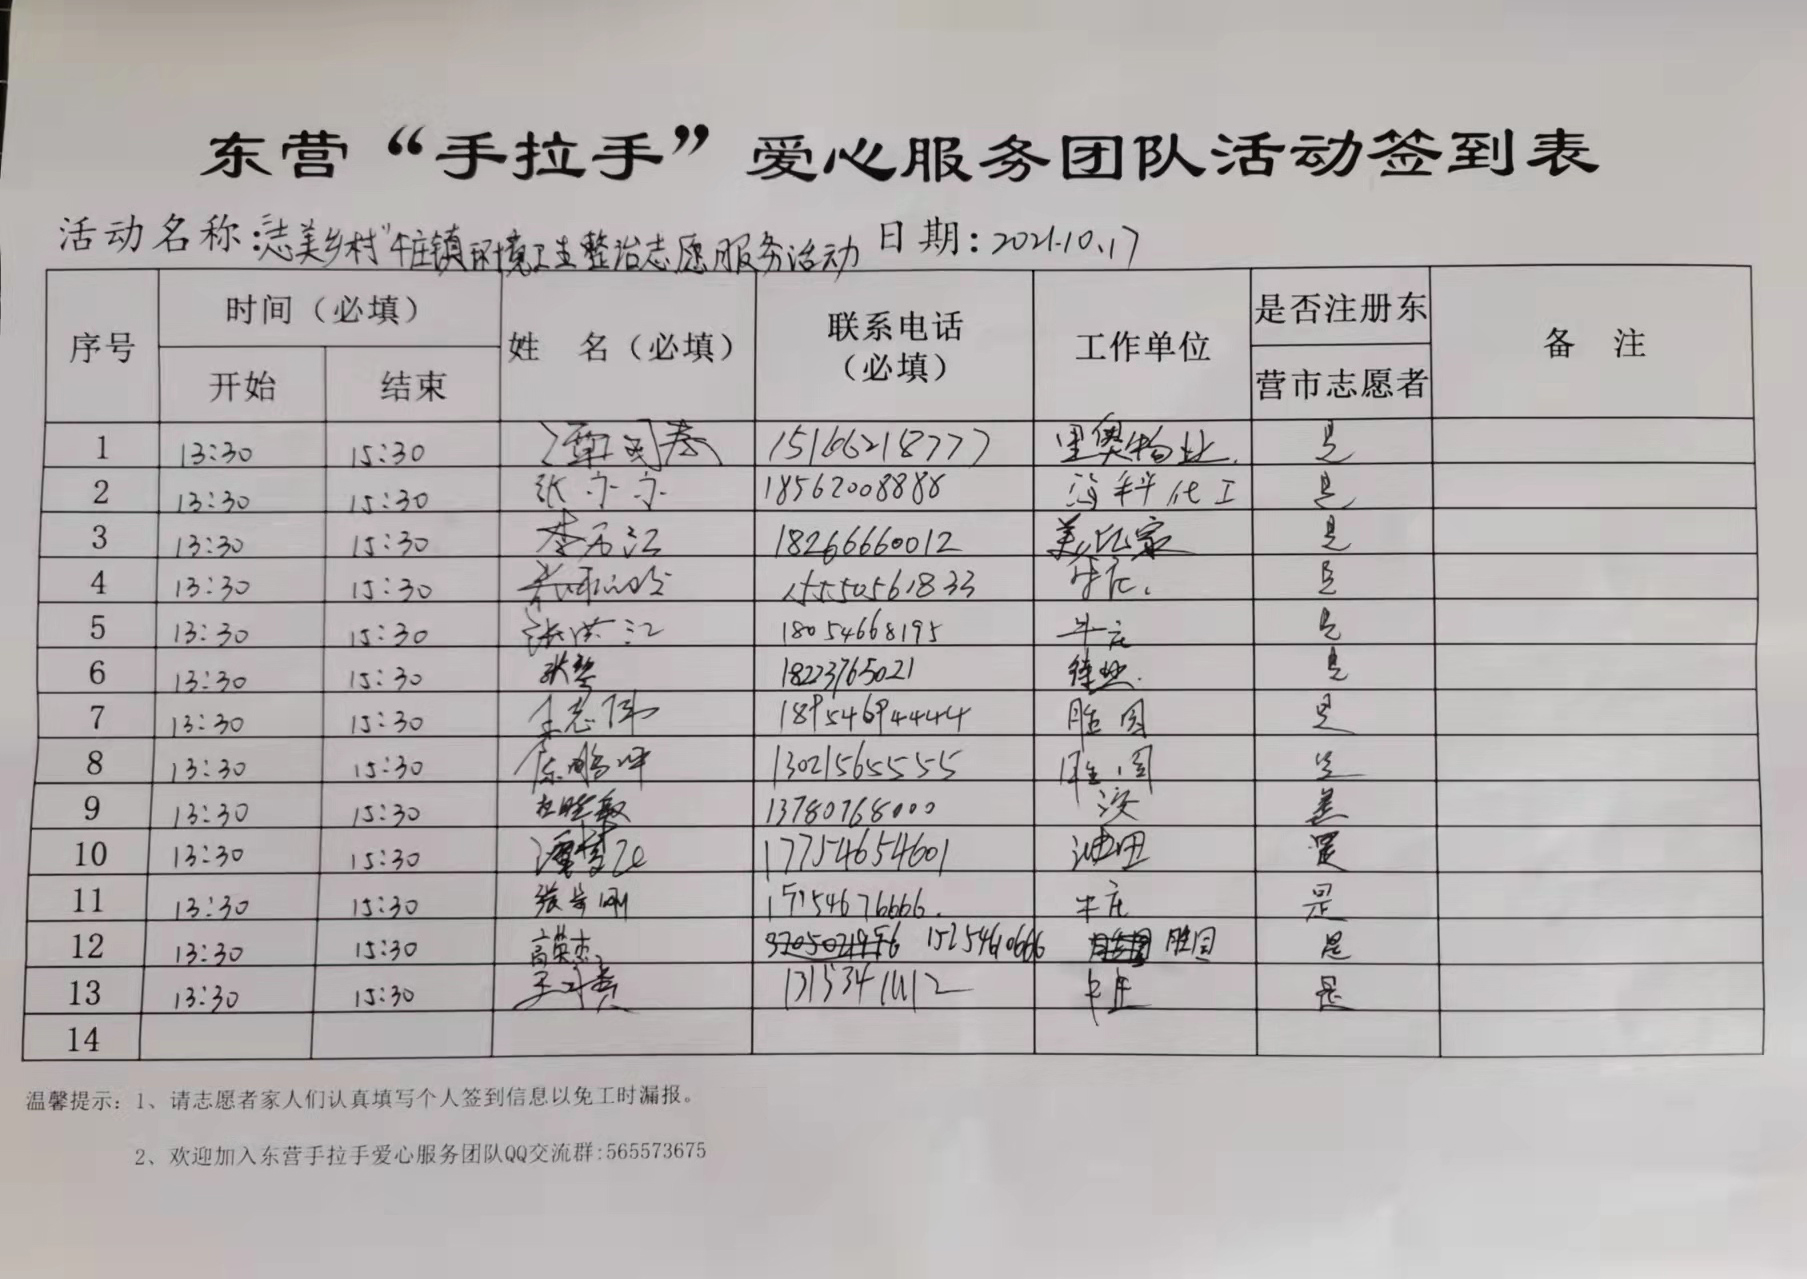 东营“手拉手”爱心服务团队活动签到表
活动名称:“志美乡村”牛庄镇环境卫生整治志愿服务活动 日期:2021.10.17
序号 时间（必填） 姓 名（必填） 联系电话（必填） 工作单位 是否注册东营市志愿者 备 注
开始 结束
1 13:30 15:30 15166218777 里奥物业. 是
2 13:30 15:30 张宁宁 18562008888 海科化工 是
3 13:30 15:30 18266660012 美亿家 是
4 13:30 15:30 15550561833 牛庄. 是
5 13:30 15:30 张洪江 18054668195 牛庄 是
6 13:30 15:30 18223765021 是
7 13:30 15:30 李志伟 18954694444 胜园 是
8 13:30 15:30 13021565555 胜园 是
9 13:30 15:30 13780768000
10 13:30 15:30 17754654601 油田 是
11 13:30 15:30 15154676666. 牛庄 是
12 13:30 15:30 高英杰 15254610666 胜园 是
13 13:30 15:30 牛庄 是
14
温馨提示: 1、请志愿者家人们认真填写个人签到信息以免工时漏报。
2、欢迎加入东营手拉手爱心服务团队QQ交流群:565573675